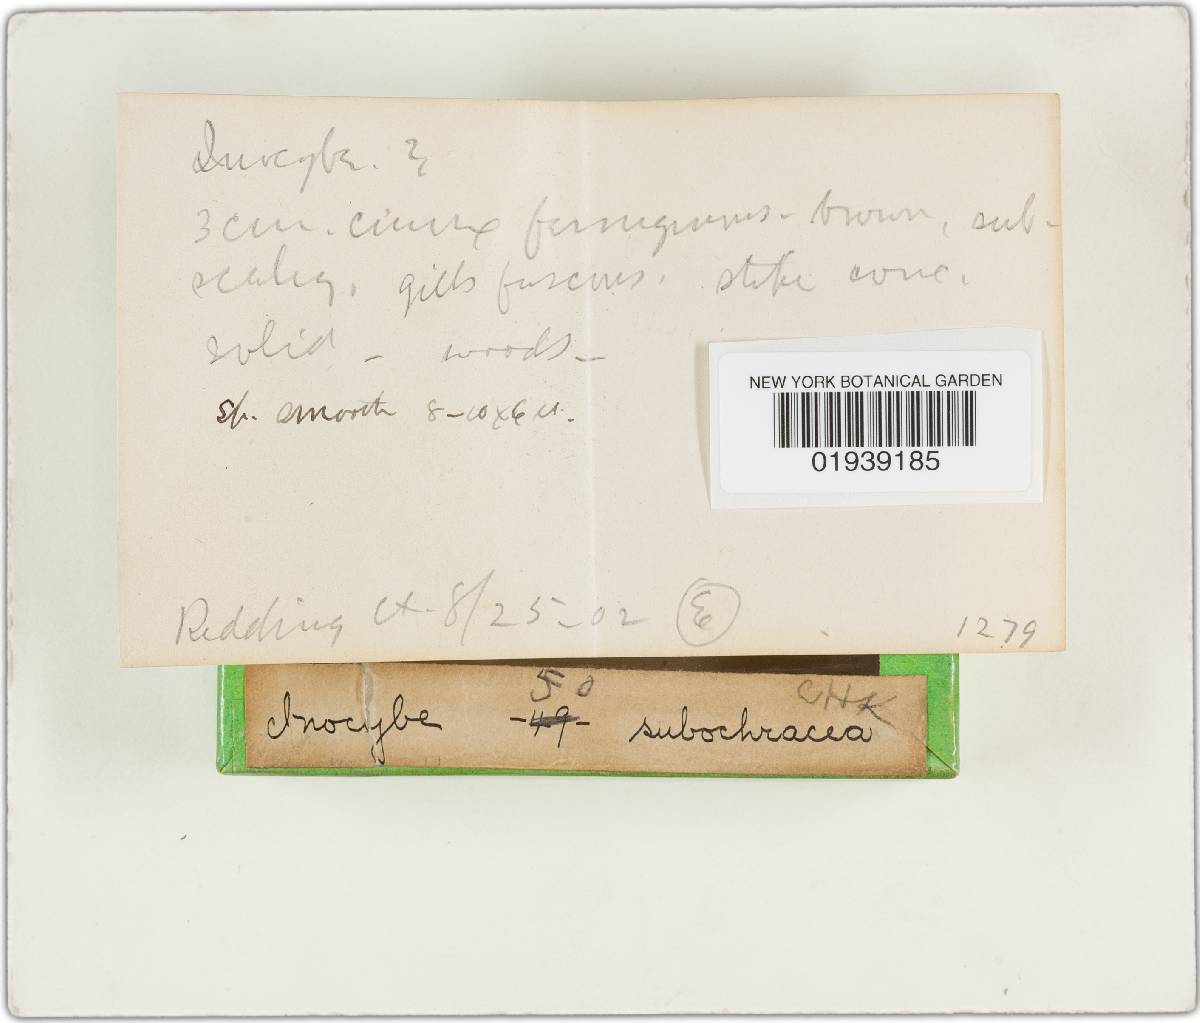 Inocybe. ?
3 cm. convex ferruginous-brown, sub-
scaly, gills fuscous. stipe conc.
solid - woods -
Sp. smooth 8-10x6 µ.
NEW YORK BOTANICAL GARDEN
01939185
Redding Ct. 8/25-02 E 1279
50 CHK
Inocybe -49- subochracea